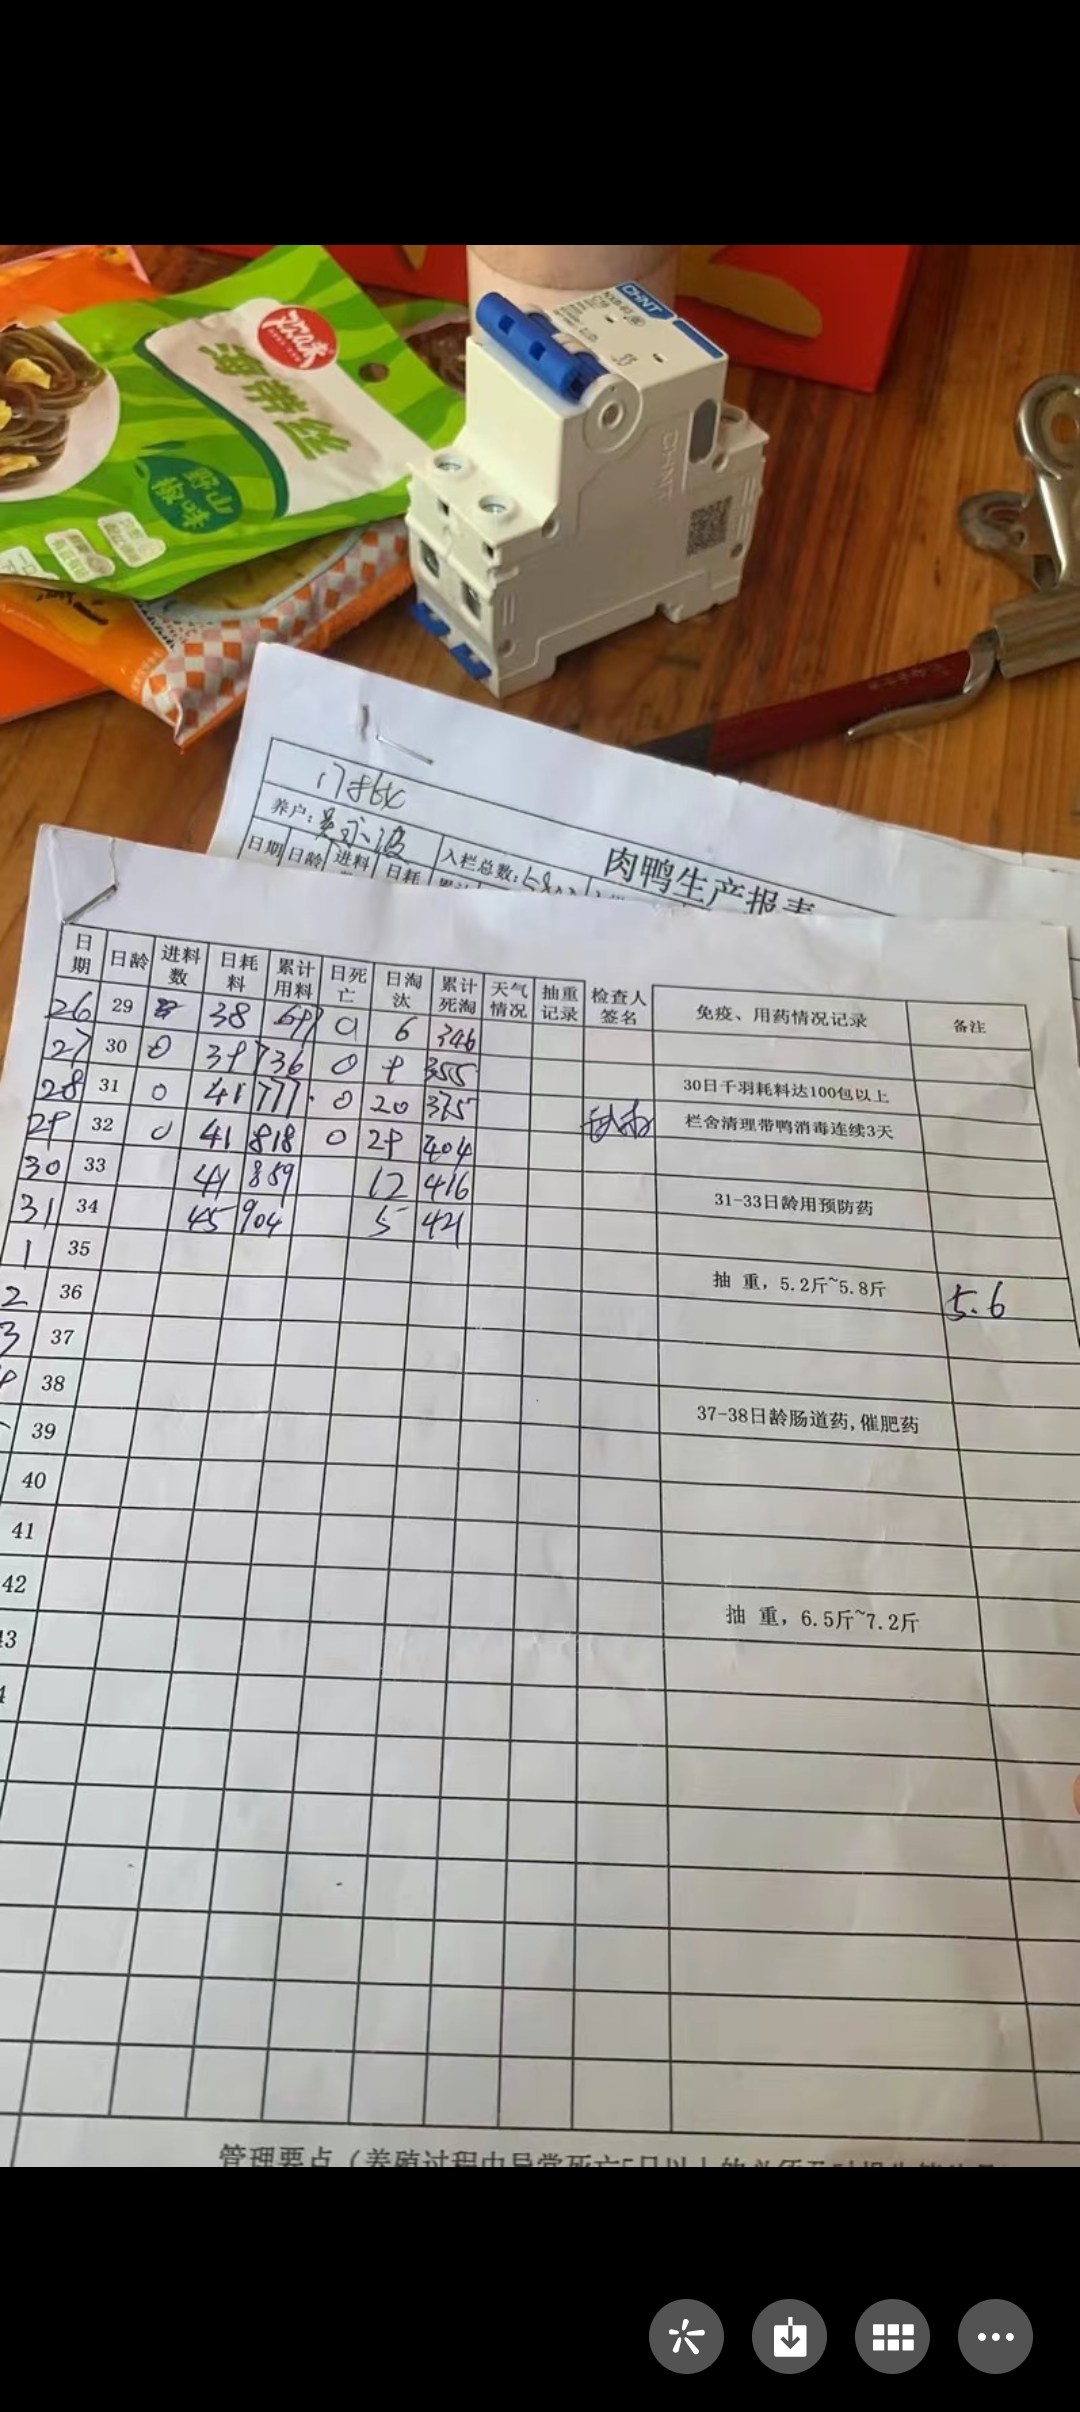 CHNT
NXB-63
C16
CHNT
海带丝
野山
椒味
肉鸭生产报表
养户:
入栏总数:
日期 日龄 进料 日耗
日期 日龄 进料数 日耗料 累计用料 日死亡 日淘汰 累计死淘 天气情况 抽重记录 检查人签名 免疫、用药情况记录 备注
26 29 38 697 0 6 346
27 30 0 39 736 0 9 355 30日千羽耗料达100包以上
28 31 0 41 777 0 20 375 栏舍清理带鸭消毒连续3天
29 32 0 41 818 0 29 404
30 33 41 859 12 416 31-33日龄用预防药
31 34 45 904 5 421
1 35 抽 重, 5.2斤~5.8斤 5.6
2 36
3 37
38 37-38日龄肠道药,催肥药
39
40
41
42 抽 重, 6.5斤~7.2斤
43
管理要点(养殖过程中异常死亡5只以上的必须及时报告